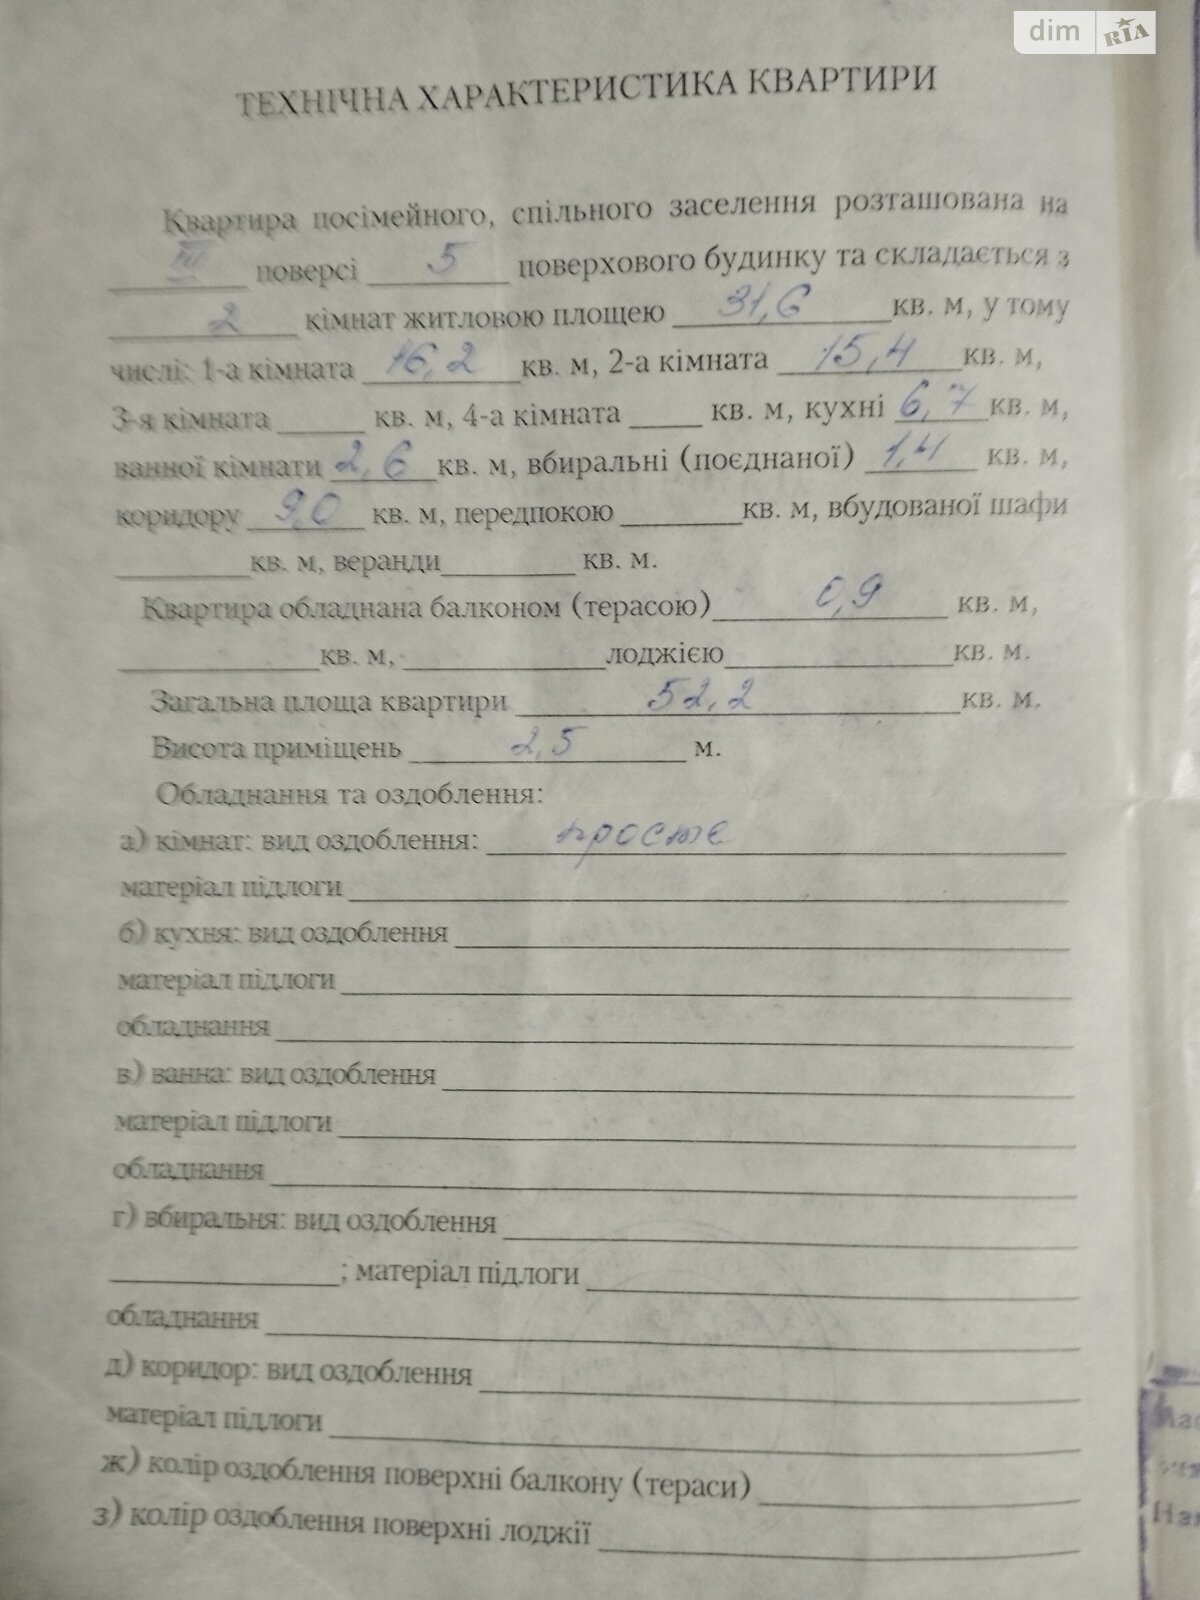 dim RIA
ТЕХНІЧНА ХАРАКТЕРИСТИКА КВАРТИРИ
Квартира посімейного, спільного заселення розташована на
поверсі 5 поверхового будинку та складається з
2 кімнат житловою площею 31,6 кв. м, у тому
числі: 1-а кімната 16,2 кв. м, 2-а кімната 15,4 кв. м,
3-я кімната кв. м, 4-а кімната кв. м, кухні 6,7 кв. м,
ванної кімнати 2,6 кв. м, вбиральні (поєднаної) 1,4 кв. м,
коридору 9,0 кв. м, передпокою кв. м, вбудованої шафи
кв. м, веранди кв. м.
Квартира обладнана балконом (терасою) 0,9 кв. м,
кв. м, лоджією кв. м.
Загальна площа квартири 52,2 кв. м.
Висота приміщень 2,5 м.
Обладнання та оздоблення:
а) кімнат: вид оздоблення: простє
матеріал підлоги
б) кухня: вид оздоблення
матеріал підлоги
обладнання
в) ванна: вид оздоблення
матеріал підлоги
обладнання
г) вбиральня: вид оздоблення
; матеріал підлоги
обладнання
д) коридор: вид оздоблення
матеріал підлоги
ж) колір оздоблення поверхні балкону (тераси)
з) колір оздоблення поверхні лоджії